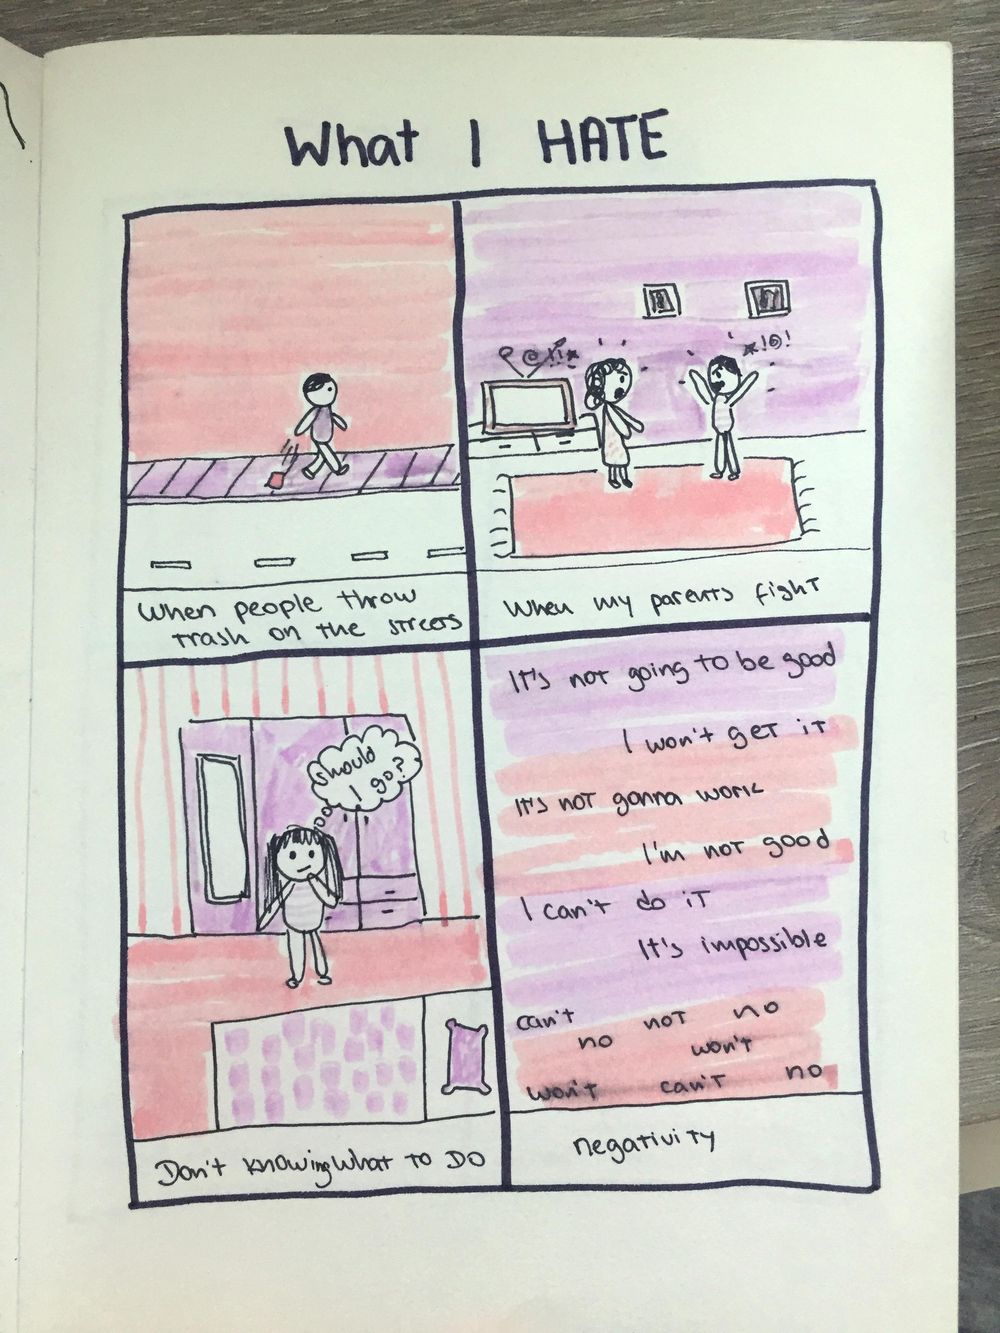 What I HATE
When people throw
trash on the streets
?@!!*
*!@!
When my parents fight
should
I go?
Don't knowing what to do
It's not going to be good
I won't get it
It's not gonna work
I'm not good
I can't do it
It's impossible
can't not no
no won't
won't can't no
negativity